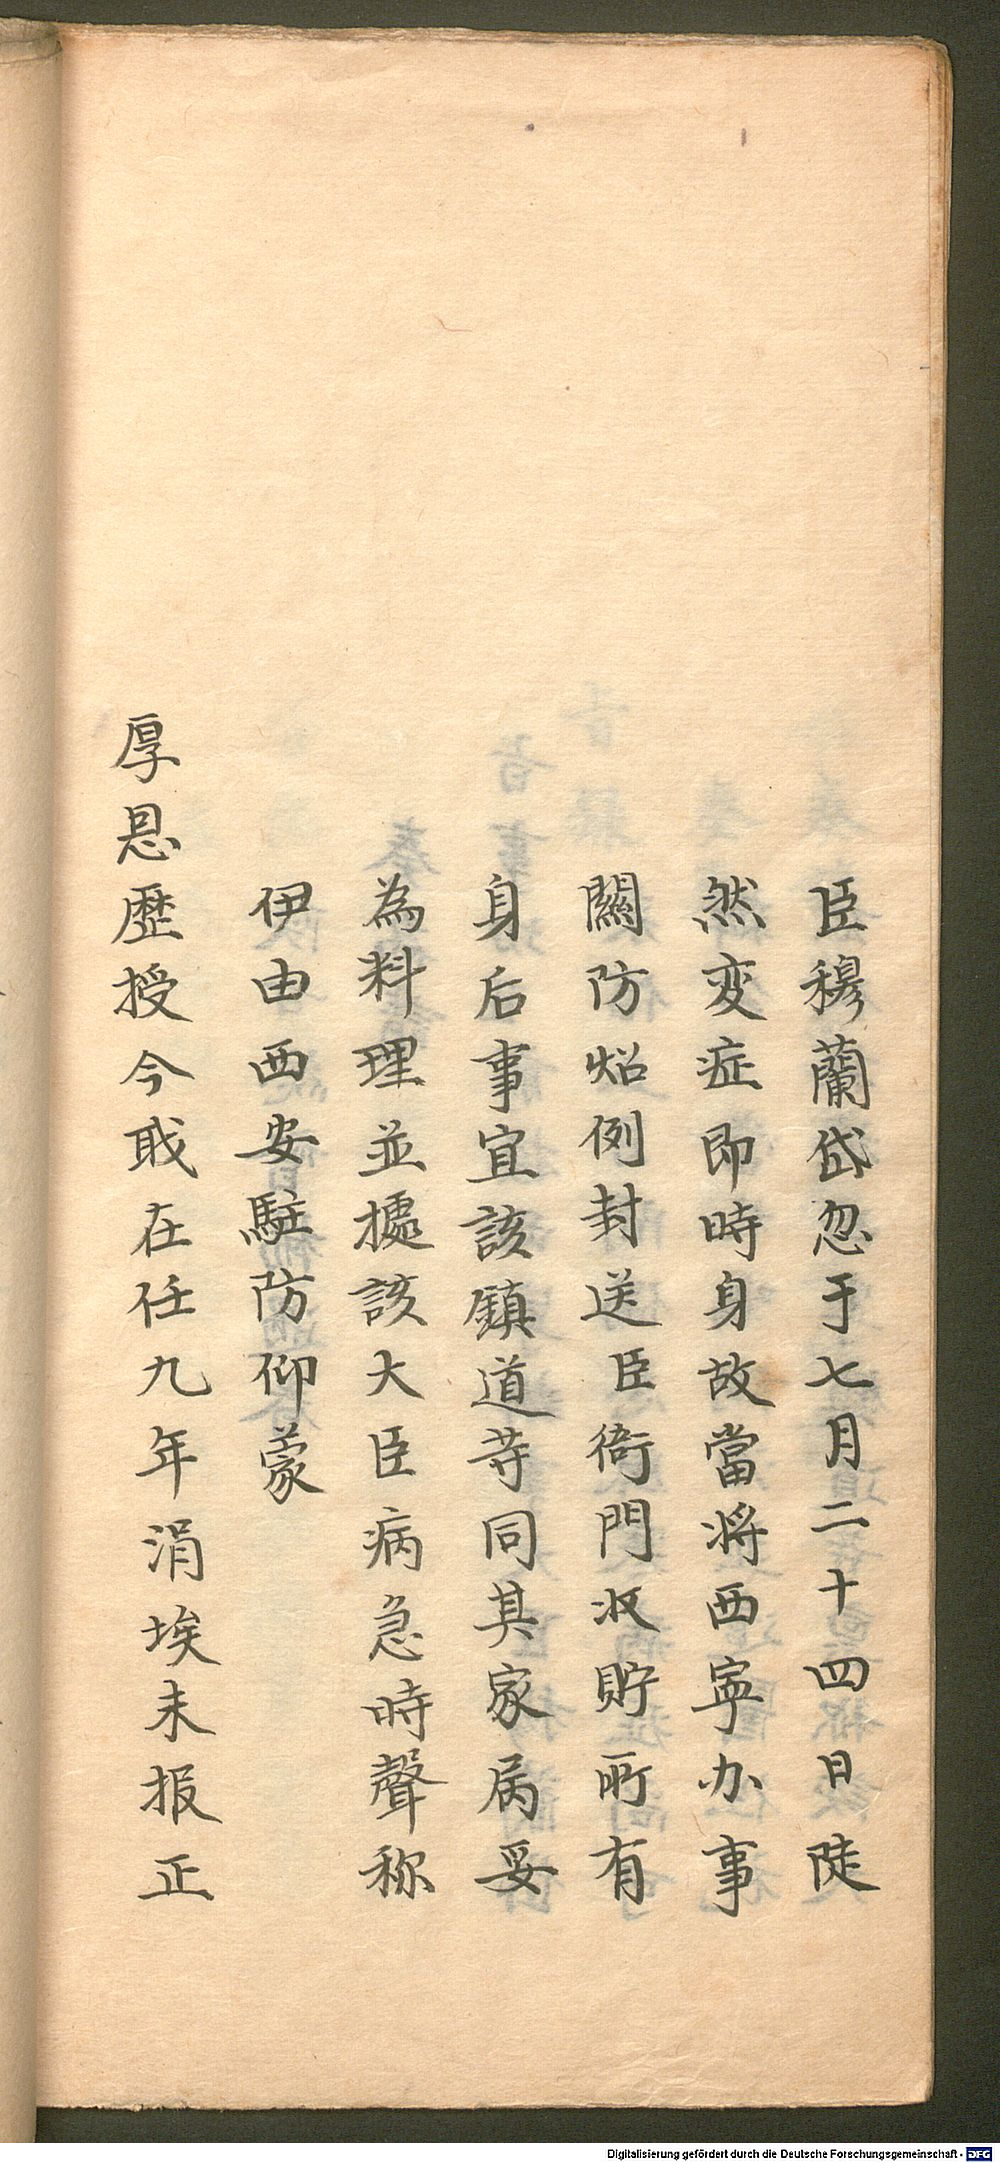 臣穆蘭岱忽于七月二十四日陡
然変症即時身故當将西寧办事
關防炤例封送臣衙門收貯所有
身后事宜該鎮道等同其家属妥
為料理並㨿該大臣病急時聲称
伊由西安駐防仰蒙
厚恩歷授今戢在任九年涓埃未报正
Digitalisierung gefördert durch die Deutsche Forschungsgemeinschaft - DFG